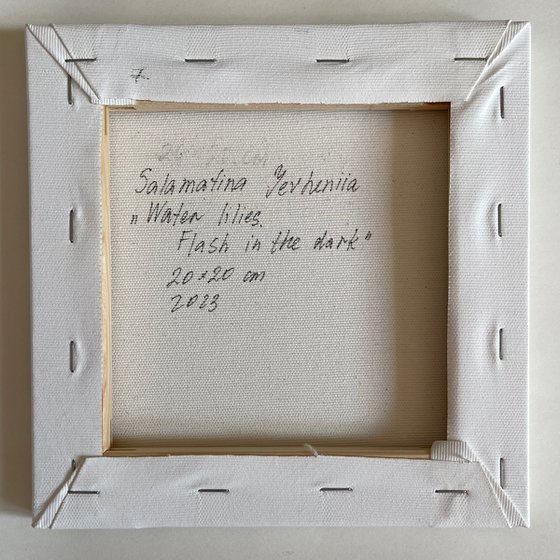 7.
Salamatina Yevheniia
„Water lilies.
Flash in the dark"
20×20 cm
2023